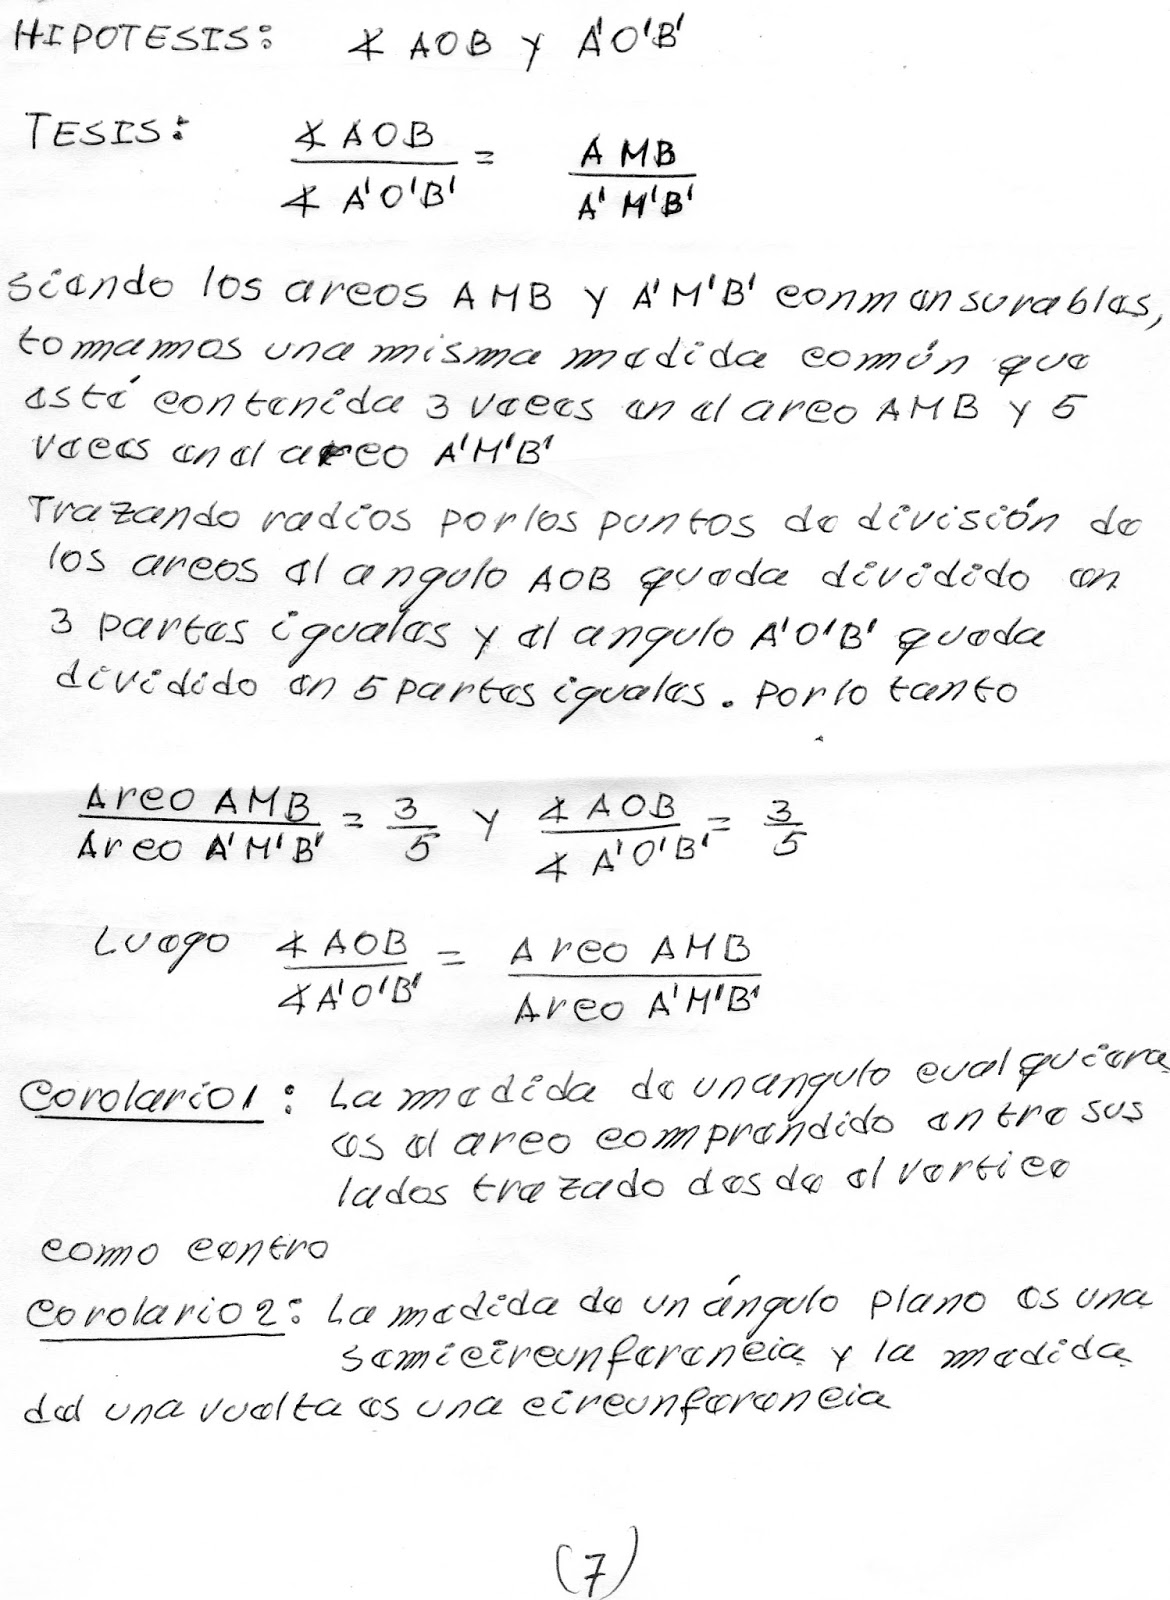 HIPOTESIS: ∡ AOB y A'O'B'
TESIS: ∡ AOB / ∡ A'O'B' = AMB / A'M'B'
siendo los arcos AMB y A'M'B' conmensurables,
tomamos una misma medida común que
esté contenida 3 veces en el arco AMB y 5
veces en el arco A'M'B'
Trazando radios por los puntos de división de
los arcos el angulo AOB queda dividido en
3 partes iguales y el angulo A'O'B' queda
dividido en 5 partes iguales. Por lo tanto
Arco AMB / Arco A'M'B' = 3/5 y ∡ AOB / ∡ A'O'B' = 3/5
Luego ∡ AOB / ∡ A'O'B' = Arco AMB / Arco A'M'B'
Corolario 1: La medida de un angulo cualquiera
es el arco comprendido entre sus
lados trazado desde el vertice
como centro
Corolario 2: La medida de un ángulo plano es una
semicircunferencia y la medida
del una vuelta es una circunferencia
(7)